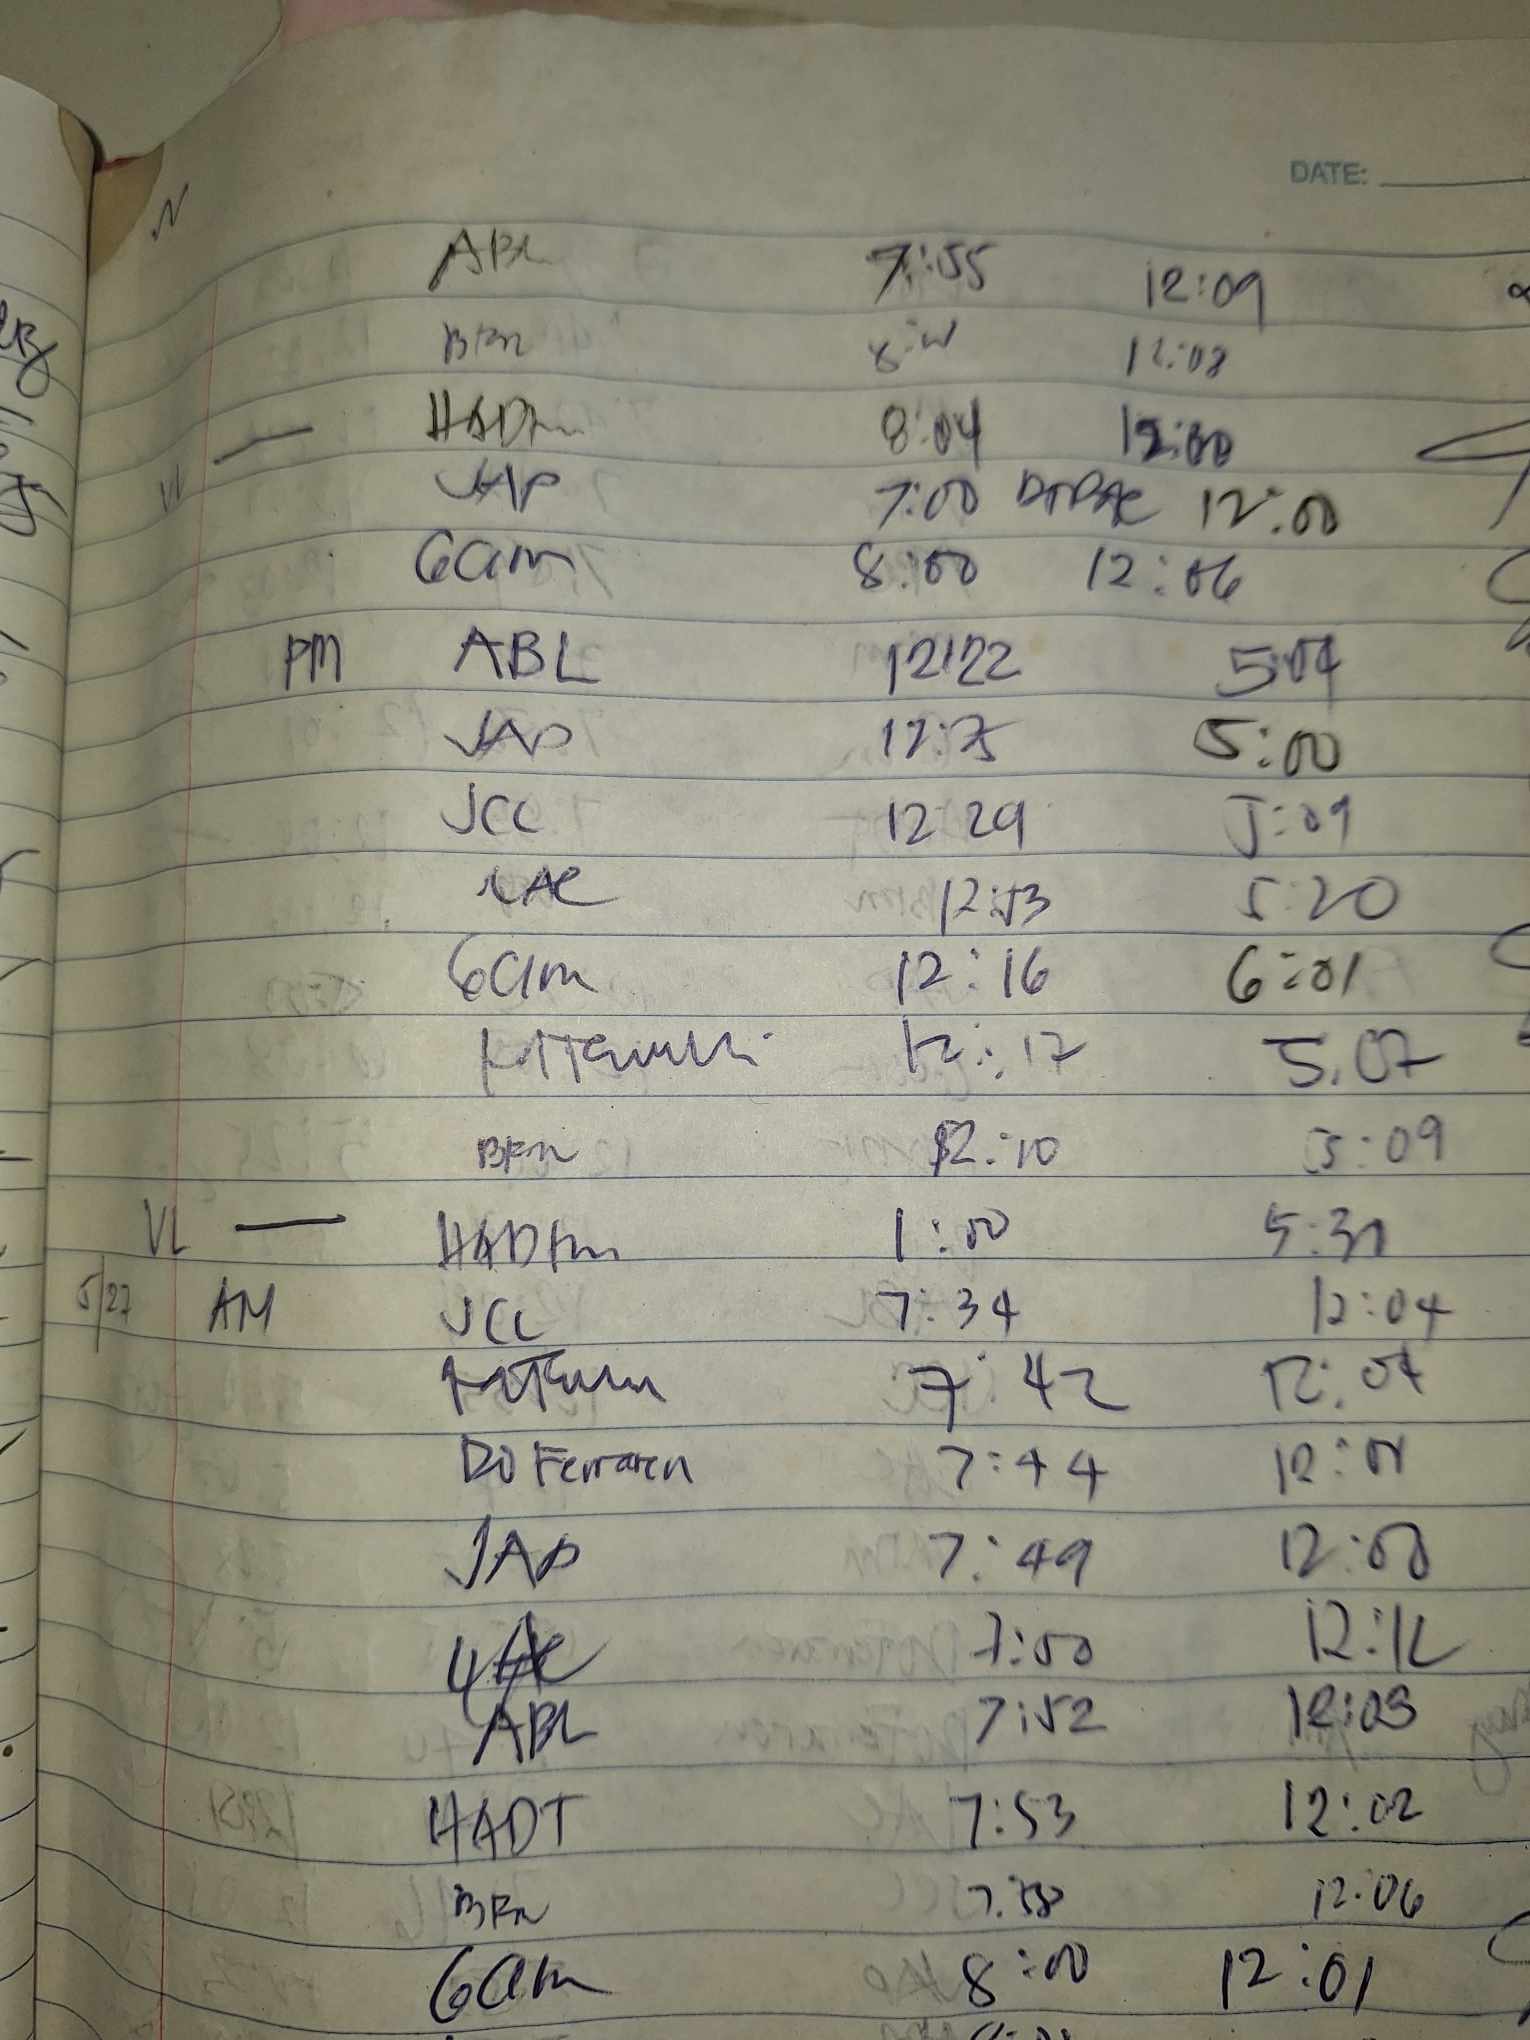 DATE:
ABL 7:55 12:09
BFM 12:08
HADTM 8:04 12:00
VL — JAP 7:00 12:00
GCIM 8:00 12:06
PM ABL 12:22 5:04
JAP 12:25 5:00
JCC 12 29 5:09
12:53 5:20
GCIM 12:16 6:01
12:17 5:07
BFM 12:10 5:09
VL — HADTM 1:00 5:31
5/27 AM JCC 7:34 12:04
7:42 12:04
DO Ferraren 7:44 12:01
JAP 7:49 12:00
7:50 12:12
ABL 7:52 12:03
HADT 7:53 12:02
BFM 7:58 12:06
GCIM 8:00 12:01